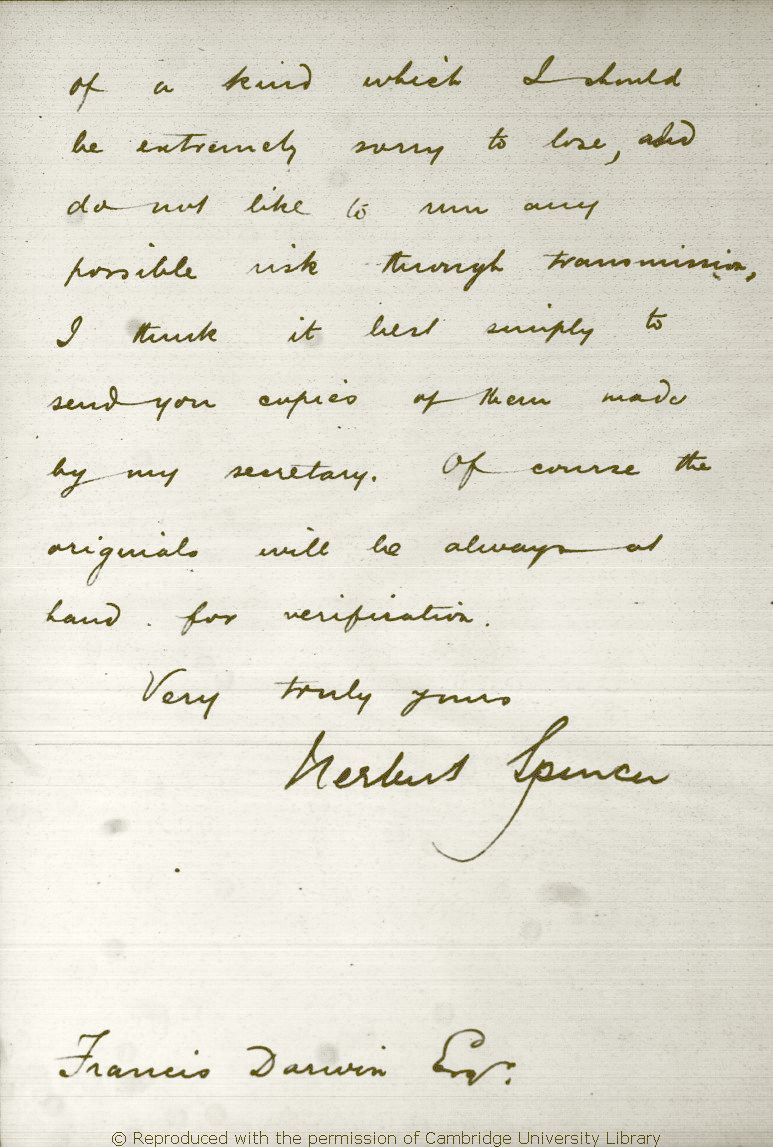 of a kind which I should
be extremely sorry to lose, and
do not like to run any
possible risk through transmission,
I think it best simply to
send you copies of them made
by my secretary. Of course the
originals will be always at
hand for verification.
Very truly yours
Herbert Spencer
Francis Darwin Esqr.
© Reproduced with the permission of Cambridge University Library